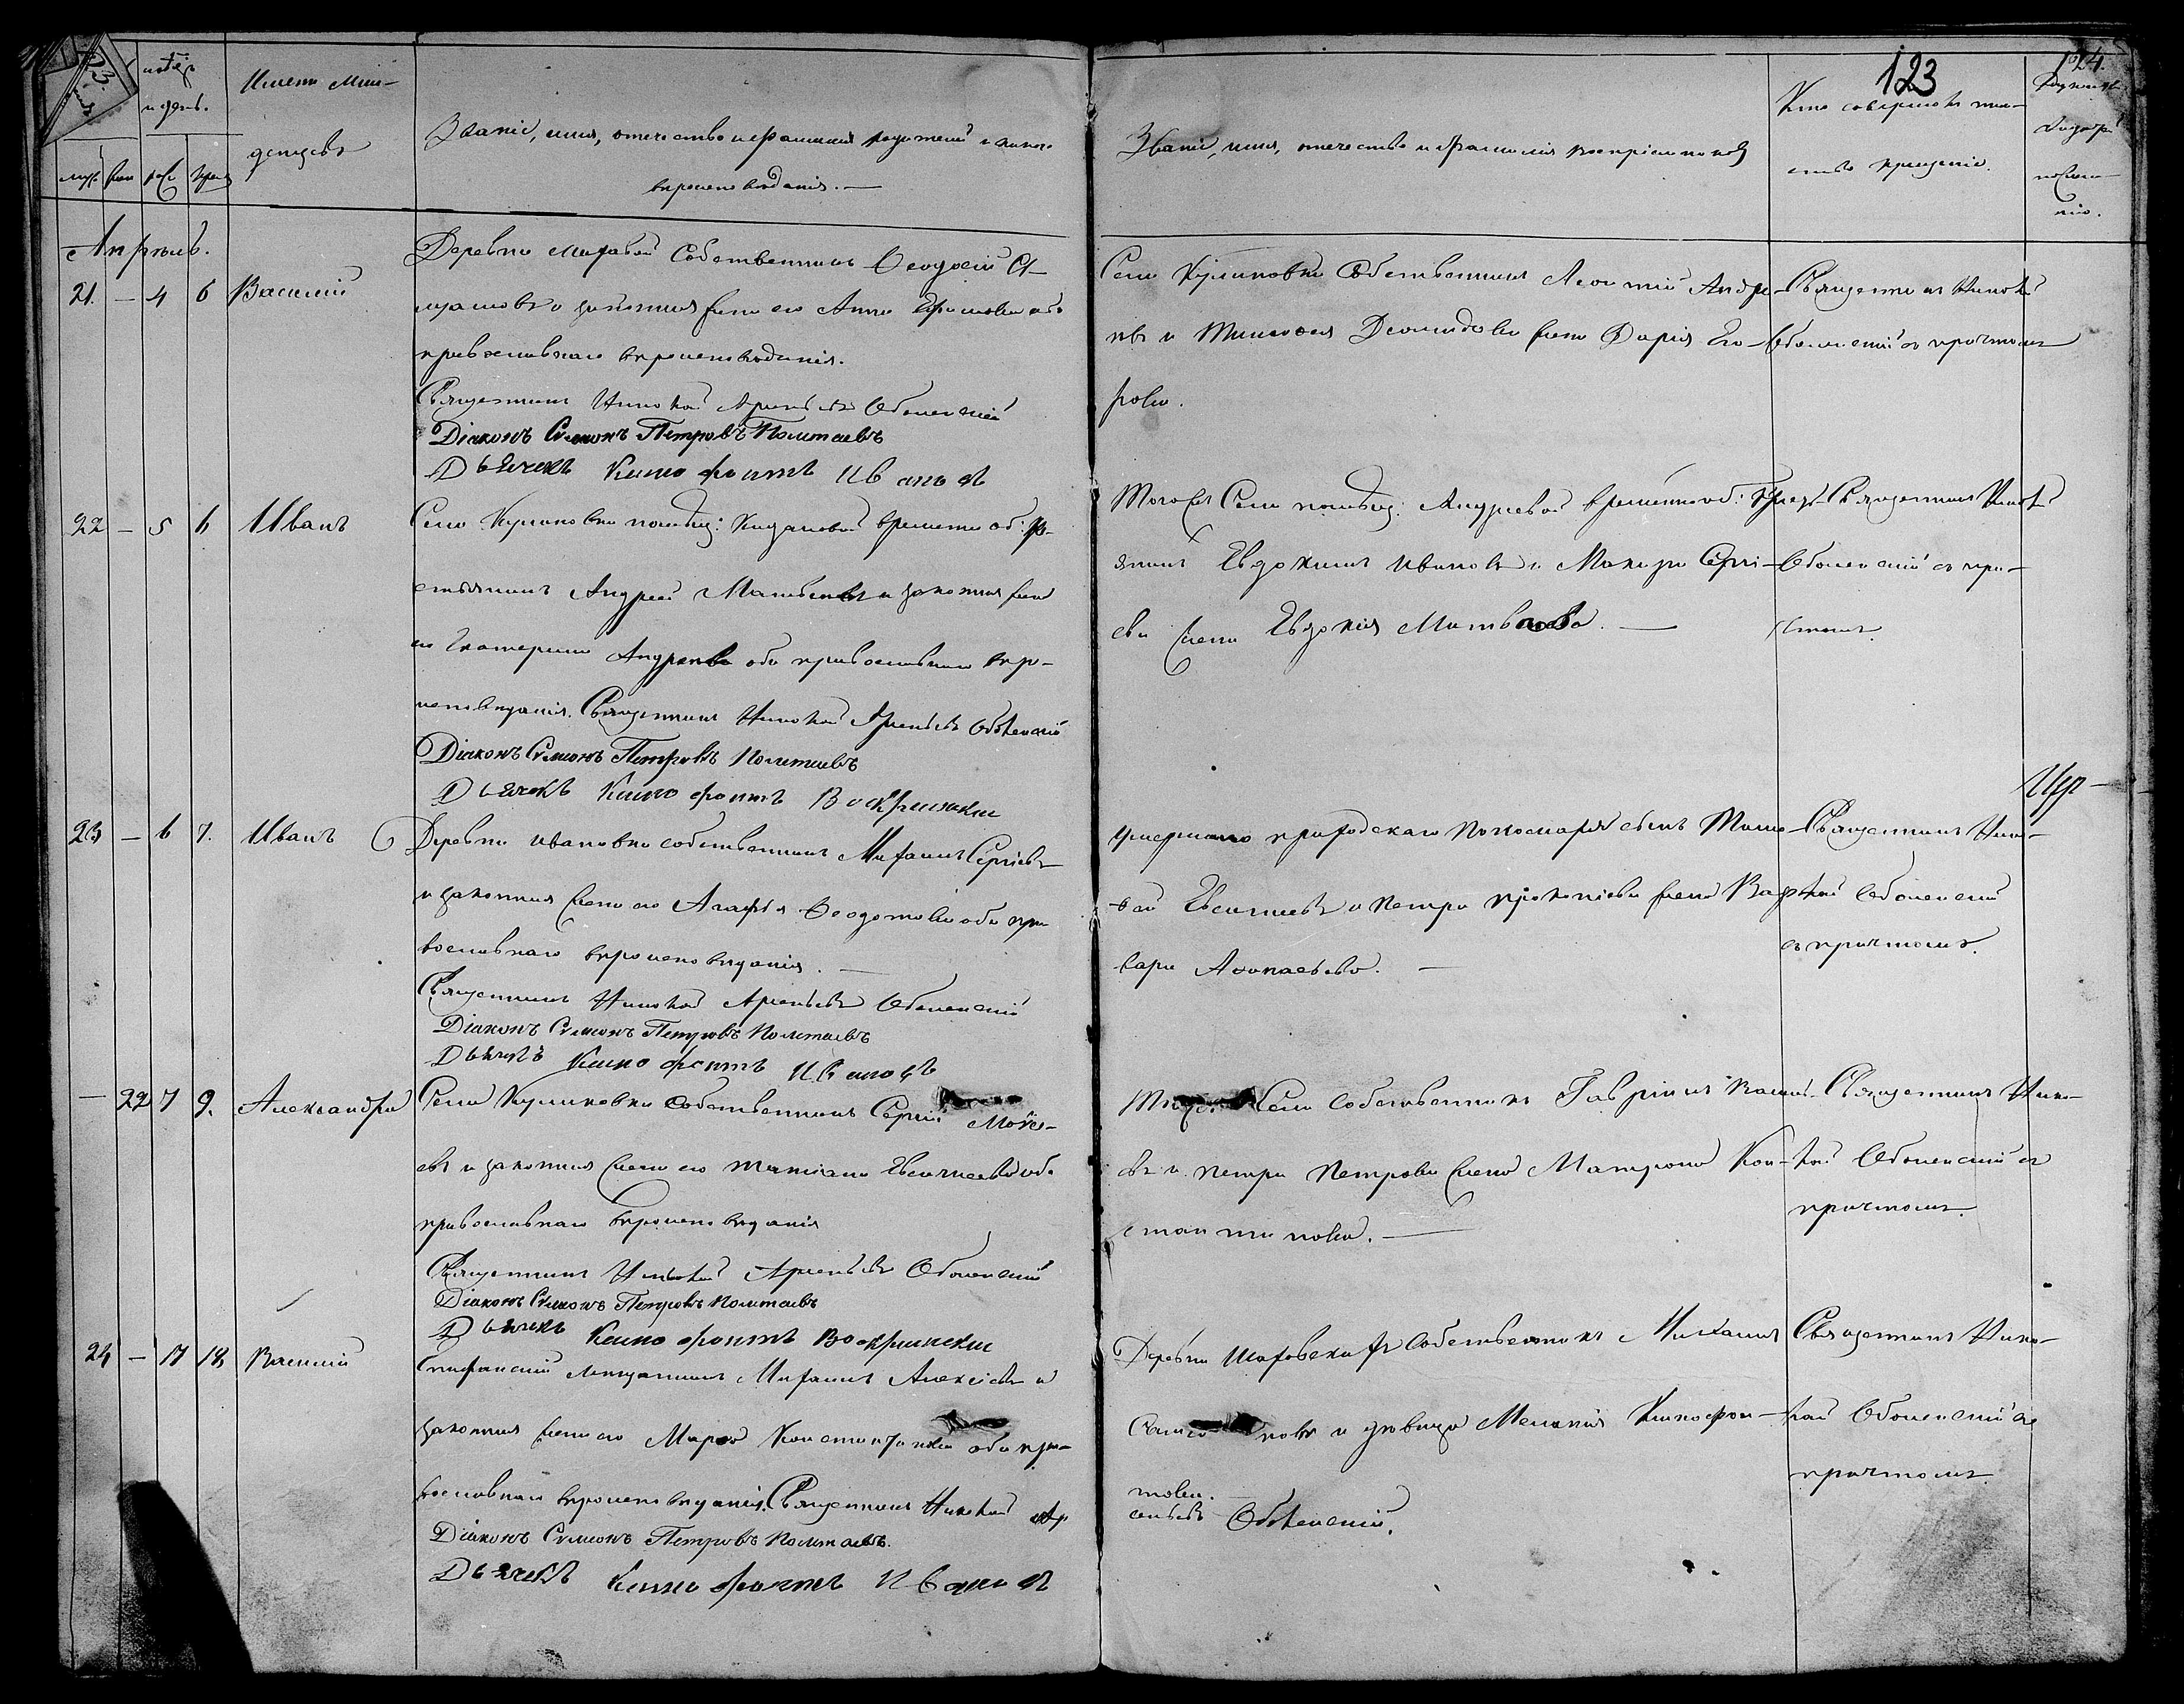 123
124.
и день.
Имена Мла-
денцевъ
Званіе, имя, отечество и фамилія родителей и какого
вѣроисповѣданія. —
Званіе, имя, отечество и фамилія воспріемниковъ
Кто совершалъ таи-
нство крещенія.
Апрѣль.
21. — 4 6 Василій
Деревни собственникъ Ѳеодосій
и законная жена его Анна оба
православнаго вѣроисповѣданія.
Священникъ Николай Арсеньевъ Оболенскій
Діаконъ Симеонъ Петровъ Полетаевъ
Дьячекъ Ксинофонтъ Ивановъ
Села Куликовки Собственникъ Леонтій Андре-
евъ и Тимофея жена Дарія Его-
рова.
Священникъ Николай
Оболенскій съ причтомъ
22 — 5 6 Иванъ
Села Куликовки помѣщ: временно об: кре-
стьянинъ Андрей Матвѣевъ и законная жена
его Екатерина Андреева оба православнаго вѣро-
исповѣданія. Священникъ Николай Арсеньевъ Оболенскій
Діаконъ Симеонъ Петровъ Полетаевъ
Дьячекъ Ксинофонтъ Воскресенски
Тогоже Села помѣщ: Андреевой временнооб:
Евдокимъ Ивановъ и Макара Сергі-
ева жена Евдокія Матвѣева. —
Священникъ Николай
Оболенскій съ при-
чтомъ.
23 — 6 7. Иванъ
Деревни Ивановки собственникъ Михаилъ Сергіевъ
и законная жена его Агафья Ѳеодотова оба пра-
вославнаго вѣроисповѣданія. —
Священникъ Николай Арсеньевъ Оболенскій
Діаконъ Симеонъ Петровъ Полетаевъ
Дьячекъ Ксинофонтъ Ивановъ
умершаго приходскаго Пономаря сынъ
Евсигнеевъ и Петра Прокопіева жена Вар-
вара Аѳонасьева. —
Священникъ Нико-
лай Оболенскій
съ причтомъ.
— 22 7 9. Александра
Села Куликовки Собственникъ Сергій Моисе-
евъ и законная жена его Татіана Евсигнеева оба
православнаго вѣроисповѣданія
Священникъ Николай Арсеньевъ Оболенскій
Діаконъ Симеонъ Петровъ Полетаевъ
Дьячекъ Ксинофонтъ Воскресенски
Села собственникъ Гавріилъ Василь-
евъ и Петра Петрова жена Матрона Кон-
стантинова. —
Священникъ Нико-
лай Оболенскій съ
причтомъ.
24 — 17 18 Василій
Епифанскій мѣщанинъ Михаилъ Алексіевъ и
законная жена его Марѳа Константинова оба пра-
вославнаго вѣроисповѣданія. Священникъ Николай Ар
Діаконъ Симеонъ Петровъ Полетаевъ.
Дьячекъ Ксинофонтъ Ивановъ
Деревни собственникъ Михаилъ
и дѣвица Меланія Ксинофон-
това.
сеньевъ Оболенскій.
Священникъ Нико-
лай Оболенскій съ
причтомъ.